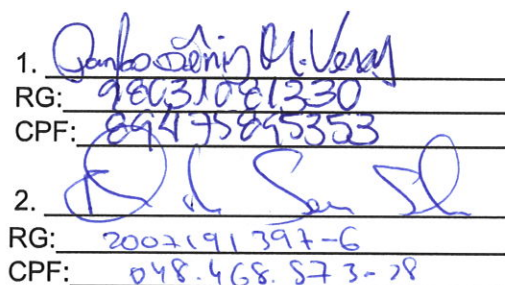 1. M. Veras
RG: 98031081330
CPF: 89475895353
2.
RG: 2007191397-6
CPF: 048.468.573-28